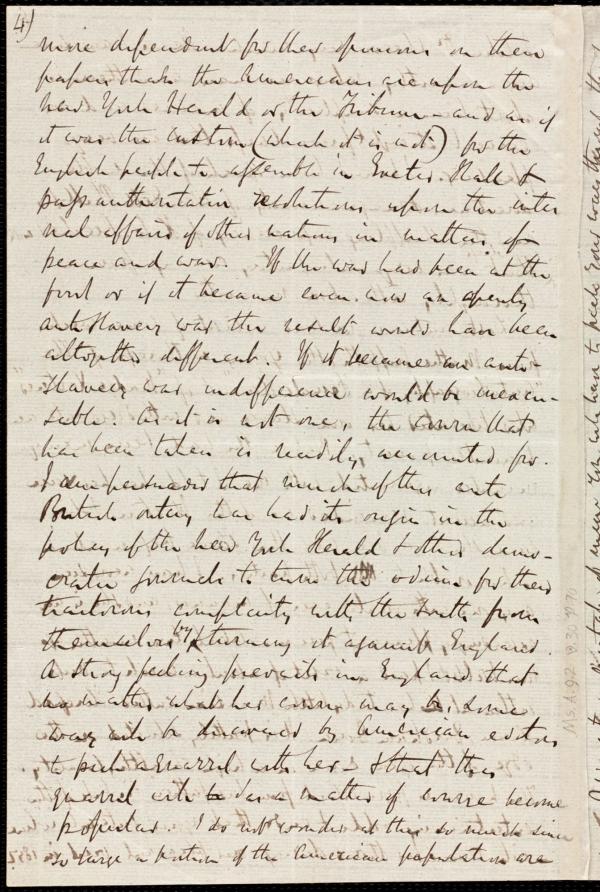 4)
more dependent for their opinions on their
papers than the Americans are upon the
New York Herald or the Tribune - and as if
it was the custom (which it is not) for the
English people to assemble in Exeter Hall &
pass authoritative resolutions upon the inter
nal affairs of other nations in matters of
peace and war. If the war had been at the
first or if it became even now an openly
anti Slavery war the result would have been
altogether different. If it became an anti-
Slavery war indifference would be inexcu-
sable. As it is not one, the course that
has been taken is readily accounted for.
I am persuaded that much of this anti
British outcry has had its origin in the
policy of the New York Herald & other demo-
cratic journals to turn the odium for their
traitorous complicity with the South from
themselves by turning it against England.
A strong feeling prevails in England that
no matter what her course may be some
way will be discovered by American editors
to pick a quarrel with her - & that this
quarrel will be as a matter of course become
popular. I do not wonder at this so much since
so large a portion of the American population are
MS.A.9.2 v.30 p.70